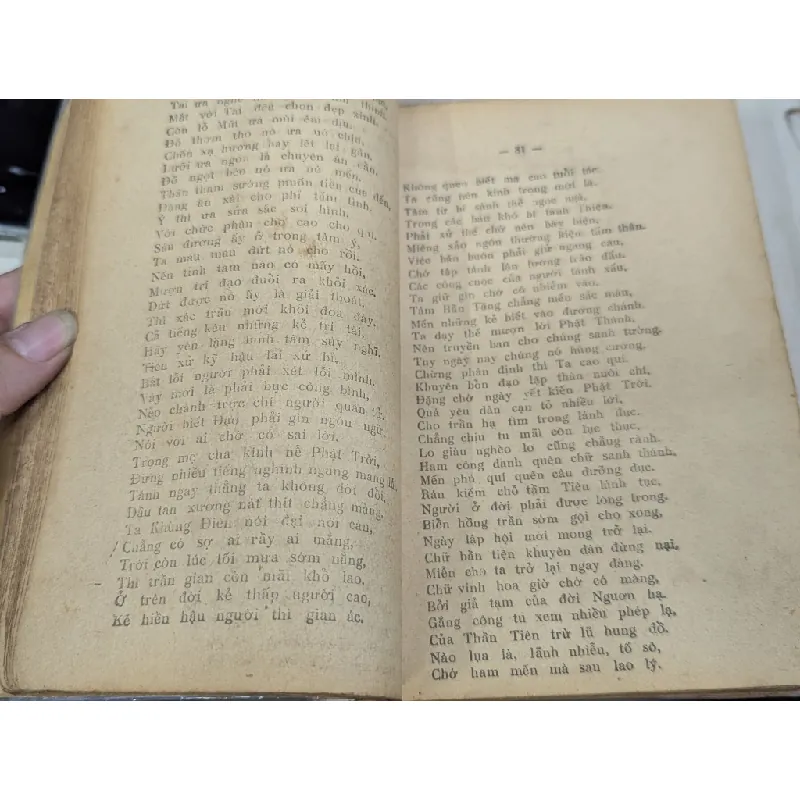 Tai ưa nghe
Mắt với Tai đều chọn đẹp xinh.
Còn lỗ Mũi ưa mùi êm dịu,
Đồ thơm tho nó ưa nó chịu,
Chốn xạ hương hay lết lại gần.
Lưỡi ưa ngon là chuyện ăn cần,
Đồ ngọt bén nó ưa nó mến.
Thân tham sướng muốn tiền của đến,
Đặng ăn xài cho phỉ tấm tình.
Ý thì ưa sửa sắc soi hình,
Với chức phận cho cao cho quí.
Sáu đường ấy ở trong tâm ý,
Ta mau mau dứt nó cho rồi.
Nên tịnh tâm nào có mấy hồi,
Mượn trí đạo đuổi ra khỏi xác.
Dứt được nó ấy là giải thoát,
Thì xác trần mới khỏi đọa đày.
Cả tiếng kêu những kẻ trí tài,
Hãy yên lặng bình tâm suy nghĩ.
Tiên xử kỷ hậu lai xử bỉ,
Bắt lỗi người phải xét lỗi mình.
Vậy mới là phải bực công bình,
Nẻo chánh trực chỉ người quân tử.
Người biết Đạo phải gìn ngôn ngữ,
Nói với ai chớ có sai lời.
Trọng mẹ cha kính nể Phật Trời,
Đừng nhiều tiếng nghinh ngang mang lỗi.
Tánh ngay thẳng ta không dời đổi,
Dầu tan xương nát thịt chẳng màng.
Ta Khùng Điên nói đại nói càn,
Chẳng có sợ ai rầy ai mắng.
Trời còn lúc tối mưa sớm nắng,
Thì trần gian còn mãi khổ lao,
Ở trên đời kẻ thấp người cao,
Kẻ hiền hậu người thì gian ác.
— 81 —
Không quen biết mà cao mồi tác.
Ta cũng nên kính trọng mới là.
Tâm từ bi sánh thể ngọc ngà,
Trong các báu khó bì tánh Thiện.
Phải xử thế chớ nên bày biện,
Miệng sắo ngôn thường biện tấm thân.
Việc bán buôn phải giữ ngang cân,
Chớ tập tánh lận lường tráo đấu.
Các công cuộc của người lánh xấu,
Ta giữ gìn chớ có nhiễm vào.
Tám Bắn Tăng chẳng mến sắc màu,
Mến những kẻ biết vào đường chánh.
Ta dạy thế mượn lời Phật Thánh,
Nên truyền ban cho chúng sanh tường.
Tuy ngày nay chúng nó hùng cương,
Chừng phân định thì Ta cao quí.
Khuyên bổn đạo lập thân nuôi chí,
Đặng chờ ngày yết kiến Phật Trời.
Quá yêu dân cạn tỏ nhiều lời,
Cho trần hạ tìm trong lánh đục.
Chẳng chịu tu mãi còn lục thục,
Lo giàu nghèo lo cũng chẳng rảnh.
Ham công danh quên chữ sanh thành,
Mến phú quí quên câu dưỡng dục.
Ráu kiếm chỗ tầm Tiêu lánh tục,
Người ở đời phải được lòng trong.
Biển hồng trần sớm gọi cho xong,
Ngày lập hội mới mong trở lại.
Chữ bần tiện khuyên dân đừng nại,
Miễn cho ta trở lại ngay đàng.
Chữ vinh hoa giờ chớ có màng,
Bởi giả tạm của đời Ngươn hạ.
Gắng công tu xem nhiều phép lạ,
Của Thần Tiên trừ lũ hung đồ.
Nào lụa là, lãnh nhiễu, tố sô,
Chớ ham mến mà sau lao lý.